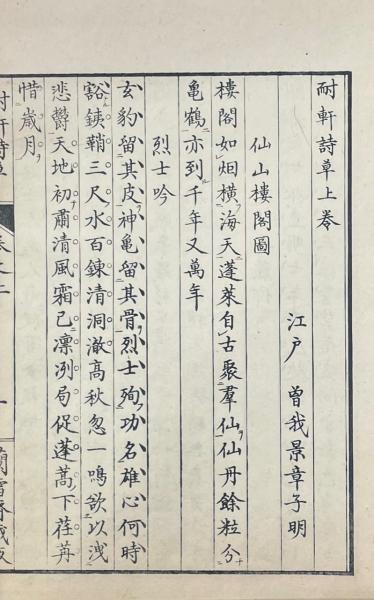 耐軒詩草上巻
江戸　曽我景章子明
仙山樓閣圖
樓閣如烟橫海天蓬萊自古聚羣仙仙丹餘粒分
亀鶴亦到千年又萬年
烈士吟
玄豹留其皮神亀留其骨烈士殉功名雄心何時
豁鋏鞘三尺水百鍊清洞澈高秋忽一鳴欲以洩
悲欝天地初肅清風霜已凛冽局促蓬蒿下荏苒
惜歳月